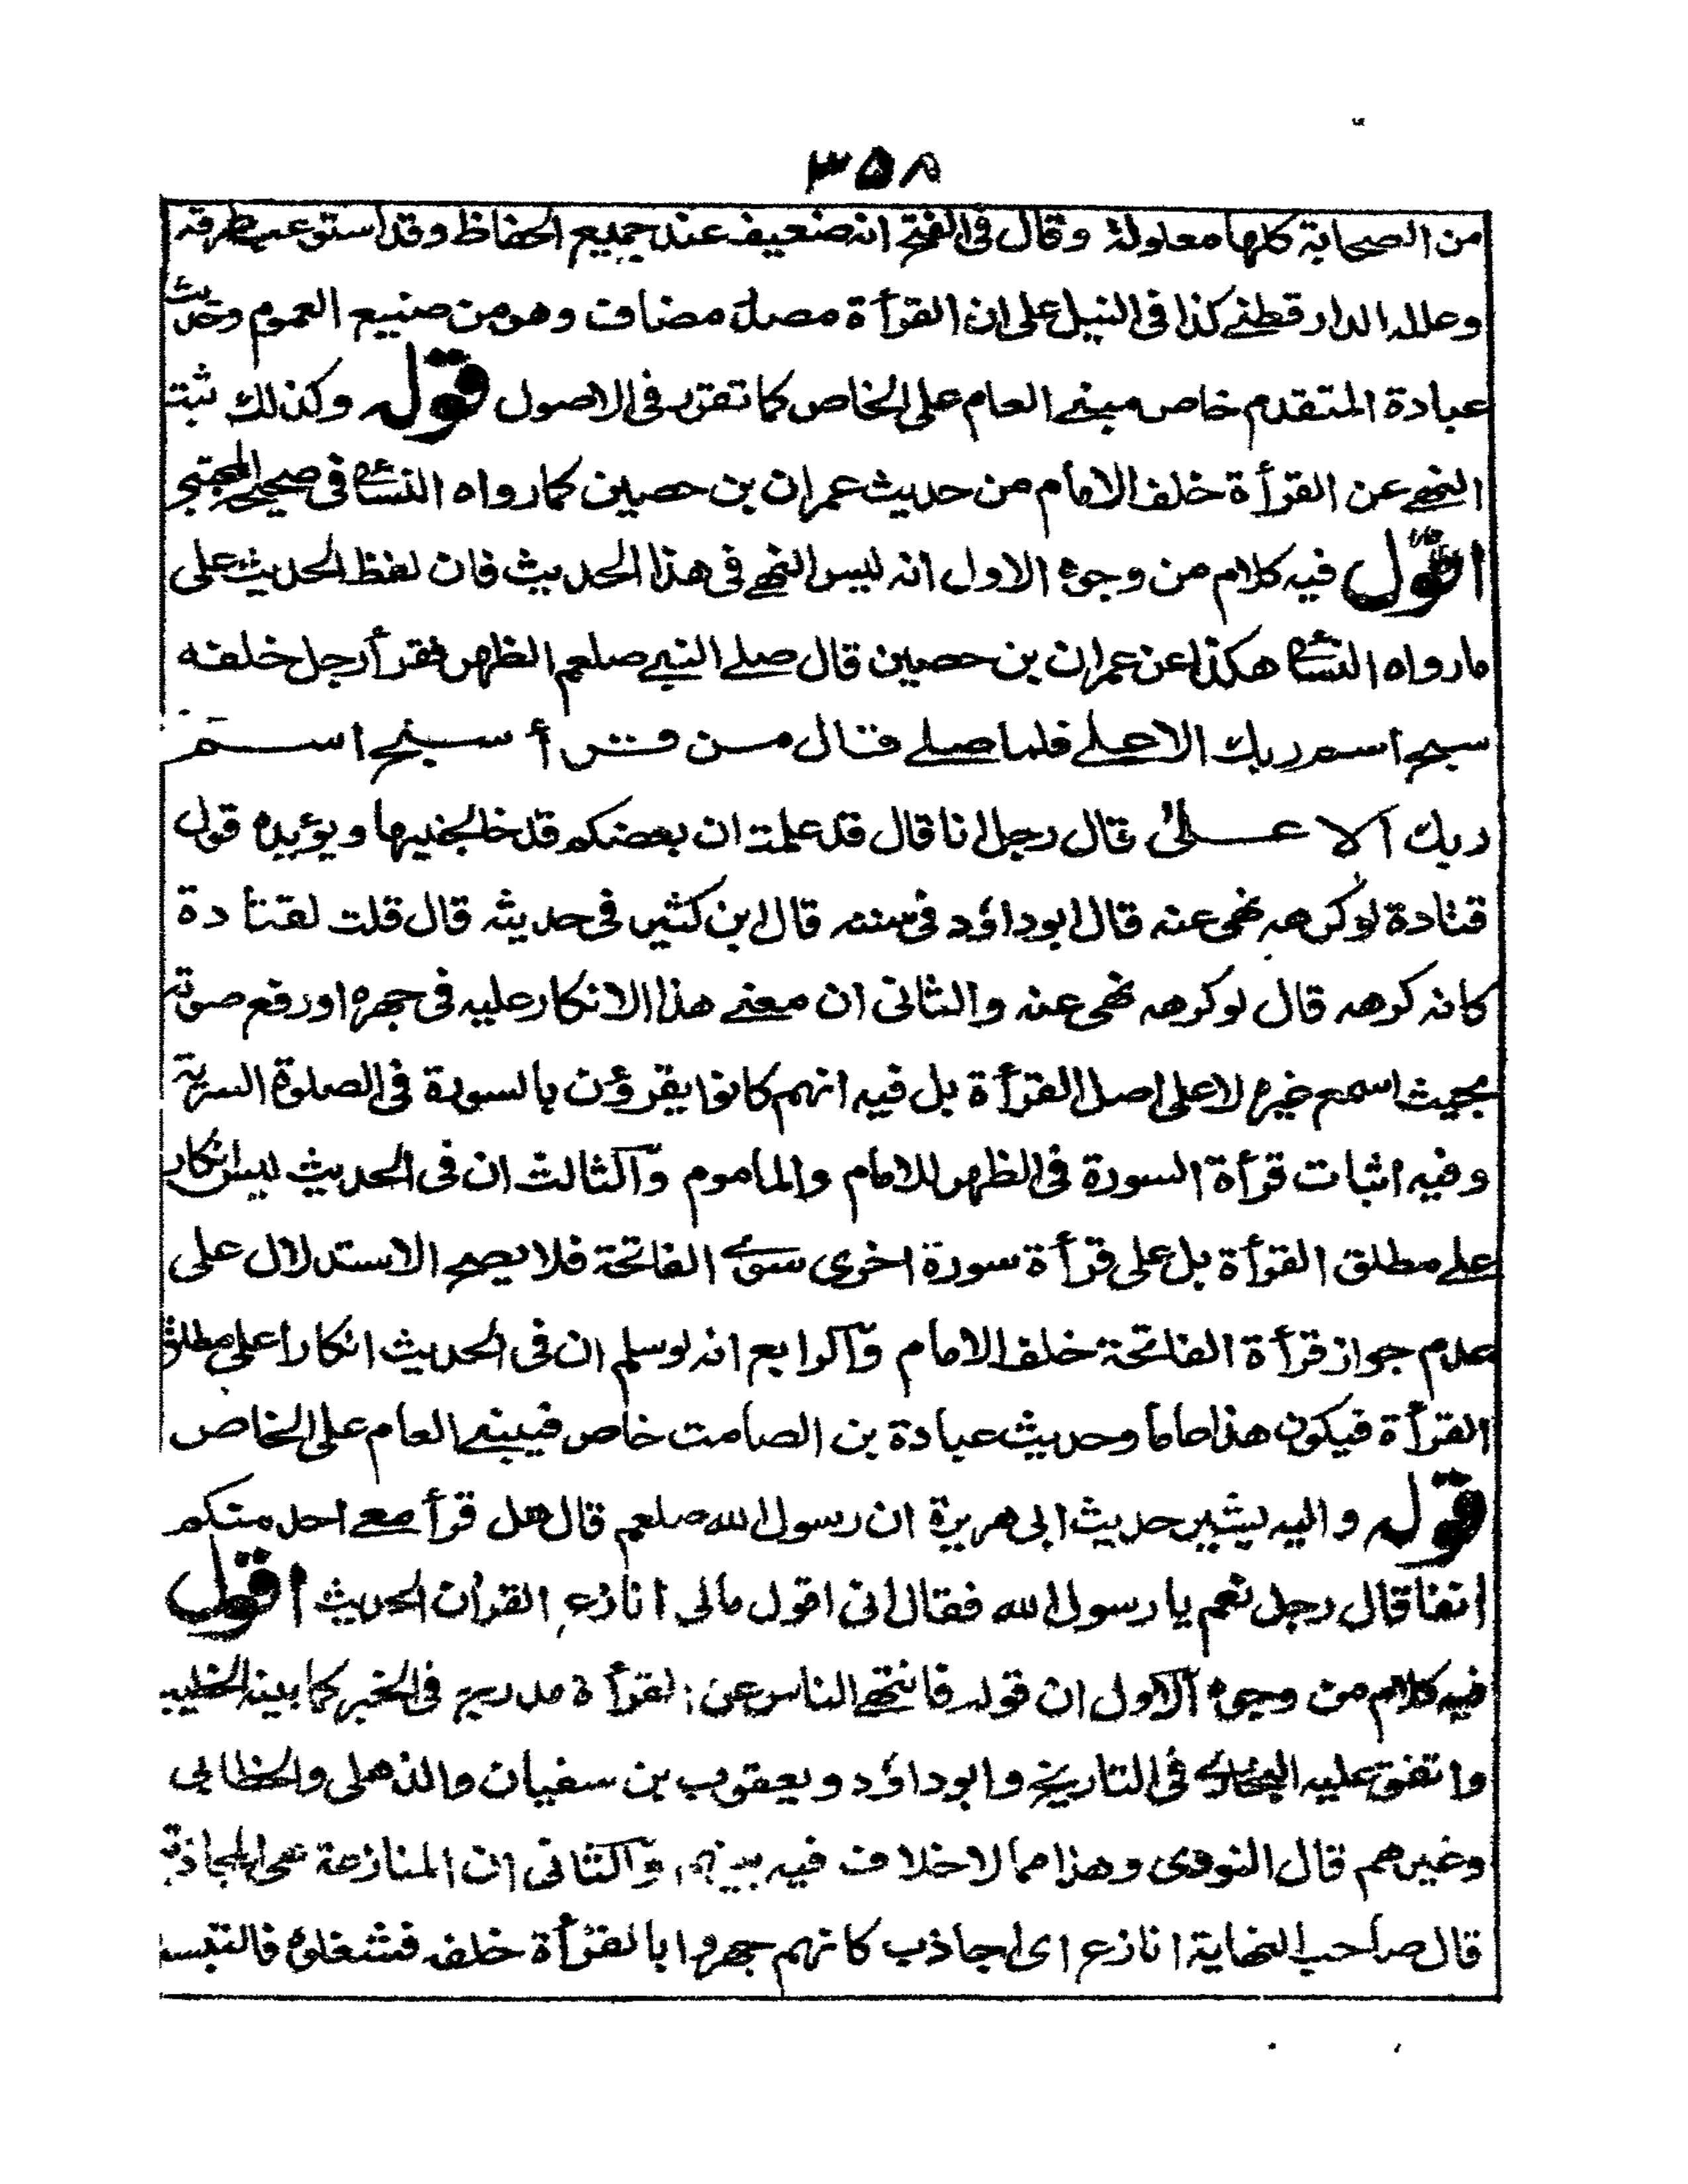 ۳۵۸
من الصحابة كلها معلولة وقال فى الفتح انه ضعيف عند جميع الحفاظ وقد استوعب طرقه
وعلله الدار قطنے كذا فى النيل على ان القرأة مصدر مضاف وهو من صنيع العموم وحديث
عبادة المتقدم خاص مبنے العام على الخاص كما تقرر فى الاصول قوله وكذلك ثبت
النهے عن القرأة خلف الامام من حديث عمران بن حصين كما رواه النسائے فى صحيحه المجتبى
اقول فيه كلام من وجوه الاول انه ليس النهے فى هذا الحديث فان لفظ الحديث على
ما رواه النسائے هكذا عن عمران بن حصين قال صلے النبے صلعم الظهر فقرأ رجل خلفه
سبح اسم ربك الاعلے فلما صلے قال من قرأ سبح اسم
ربك الاعلىٰ قال رجل انا قال قد علمت ان بعضكم قد خالجنيها ويؤيده قول
قتادة لو كرهه نهى عنه قال ابو داؤد فى سننه قال ابن كثير فى حديثه قال قلت لقتادة
كانه كرهه قال لو كرهه نهى عنه والثانى ان معنے هذا الانكار عليه فى جهره او رفع صوته
بحيث اسمع غيره لا على اصل القرأة بل فيه انهم كانوا يقرؤن بالسورة فى الصلوة السرية
وفيه اثبات قرأة السورة فى الظهر للامام والماموم والثالث ان فى الحديث ليس انكار
علے مطلق القرأة بل على قرأة سورة اخرى سوے الفاتحة فلا يصح الاستدلال على
عدم جواز قرأة الفاتحة خلف الامام والرابع انه لو سلم ان فى الحديث انكارا على مطلق
القرأة فيكون هذا عاما وحديث عبادة بن الصامت خاص فيبنے العام على الخاص
قوله واليه يشير حديث ابى هريرة ان رسول الله صلعم قال هل قرأ معے احد منكم
انفا قال رجل نعم يا رسول الله فقال انى اقول مالى انازع القرأن الحديث اقول
فيه كلام من وجوه الاول ان قوله فانتهے الناس عن القرأة مدرج فى الخبر كما بينه الخطيب
واتفق عليه البخارے فى التاريخ وابو داؤد ويعقوب بن سفيان والذهلى والخطابى
وغيرهم قال النووى وهذا مما لا خلاف فيه بينهم والثانى ان المنازعة هى المجاذبة
قال صاحب النهاية انازع اى اجاذب كانهم جهروا بالقرأة خلفه فشغلوه فالتبست